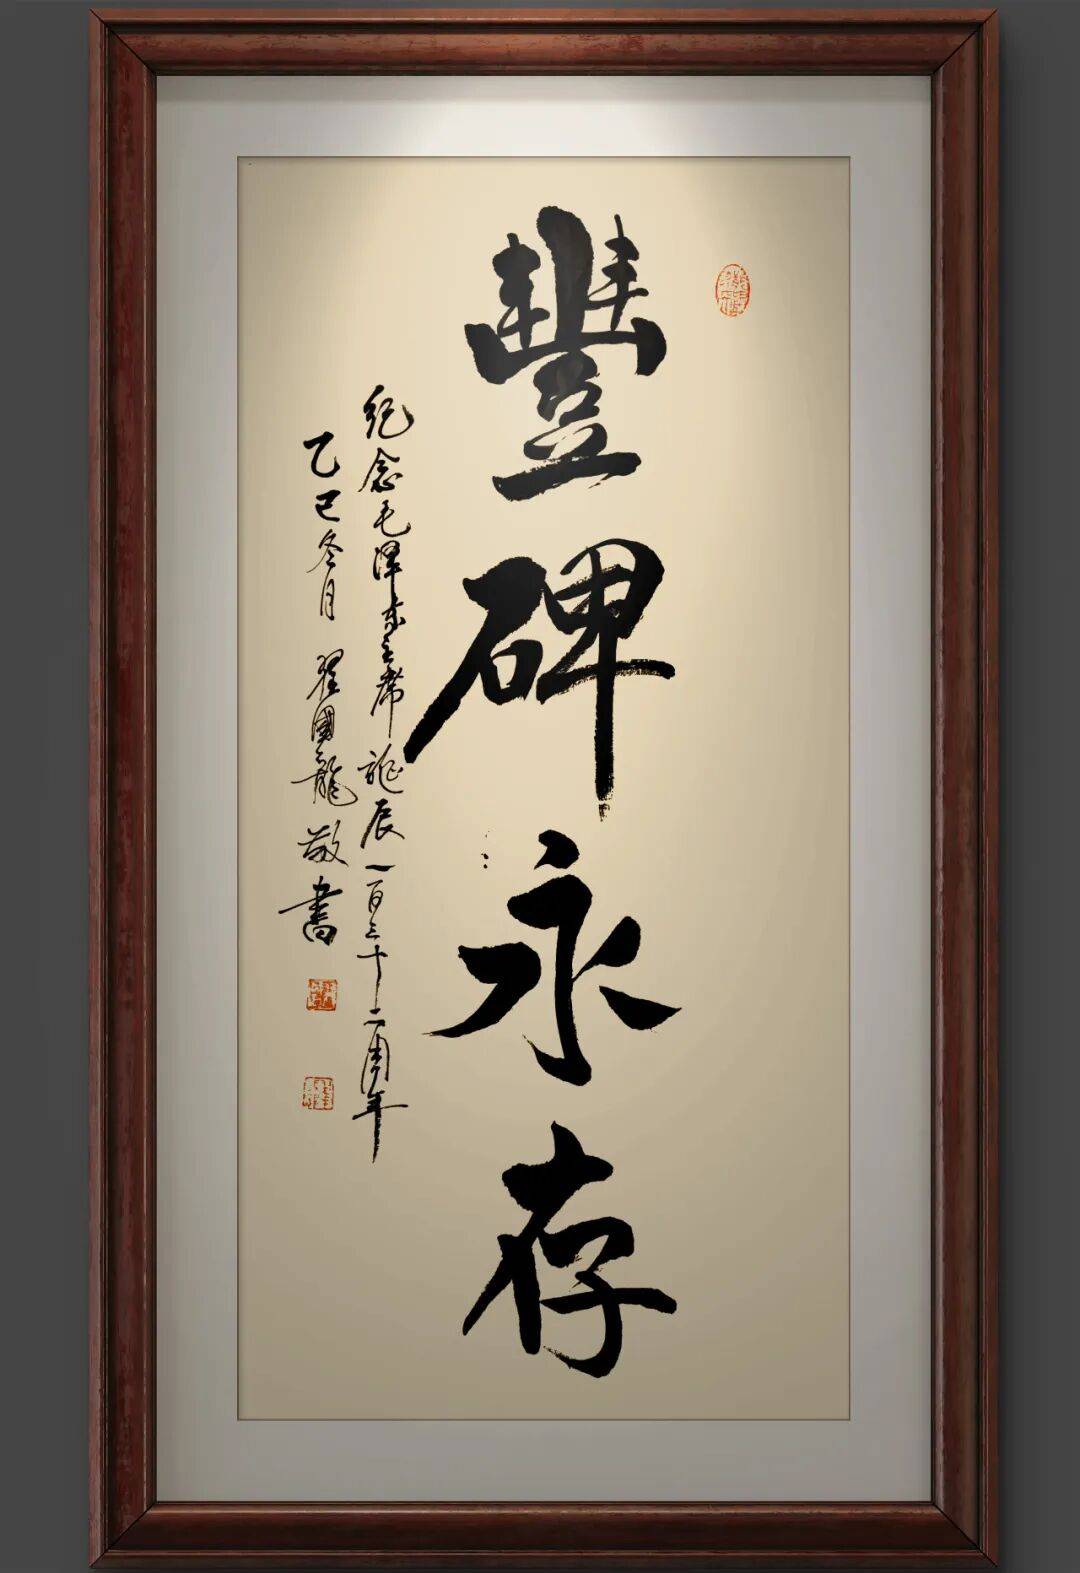 豐碑永存
纪念毛泽东主席诞辰一百三十二周年
乙巳冬月 翟國龍敬書